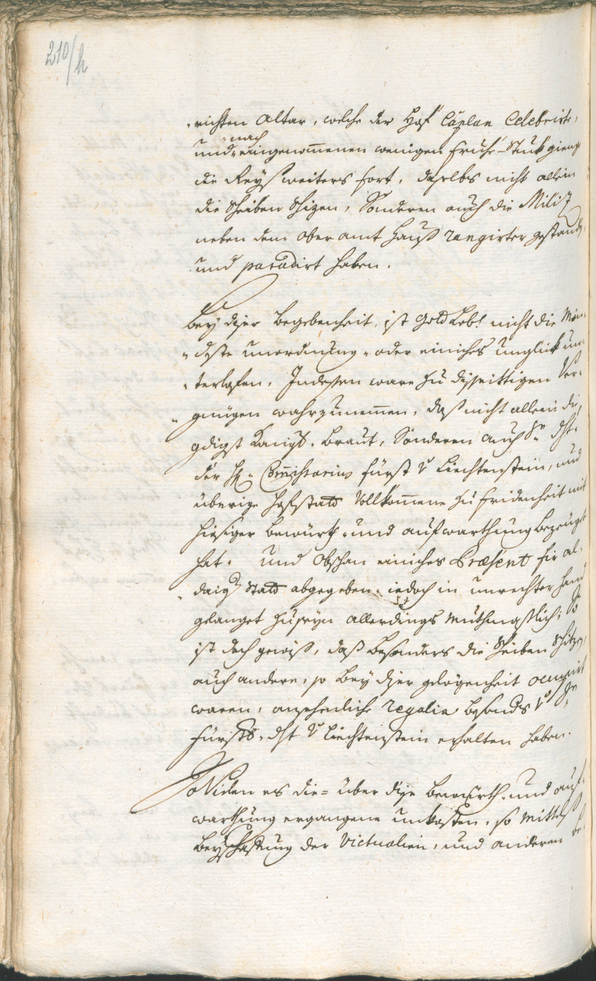 210/2
richten Altar, welche der Hof Caplan Celebrirte,
nach
und eingenommenen wenigen Fruhe-Stuk gieng
die Reys weiters fort, daselbs nicht allein
die Scheiben Schizen, Sonderen auch die Miliz
neben dem Oberamt Hauß rangirter gestanden
und paradirt haben.
Bey diser Begebenheit ist Gott Lob! nicht die Min-
deste unordnung oder einiches unglük un-
terlofen. Indessen ware zu disseittigen Ver-
gnügen wahrzunemmen, daß nicht allein die
gdigst Königl. Braut, Sonderen auch Sr. Dht.
der H. Commissarius Fürst v. Liechtenstein, und
überige Hofstatt Vollkommene Zufridenheit mit
hiesiger bewürth- und aufwarthung bezeugt
hat. Und Obschon einiches Præsent für al-
daig Statt abgegeben, iedoch in unrechter Hand
gelanget zuseyn allerdings muthmaßlich; So
ist doch gewiß, daß besonders die Scheiben Schizen,
auch andere, so bey diser gelegenheit occupirt
waren, ansehenliche regalia besonders von Sr.
Fürstl. Dht v. Liechtenstein erhalten haben.
Nidem es die über dise bewürth- und auf-
warthung ergangene unkosten, so mittelst
beyschaffung der Victualien, und anderen